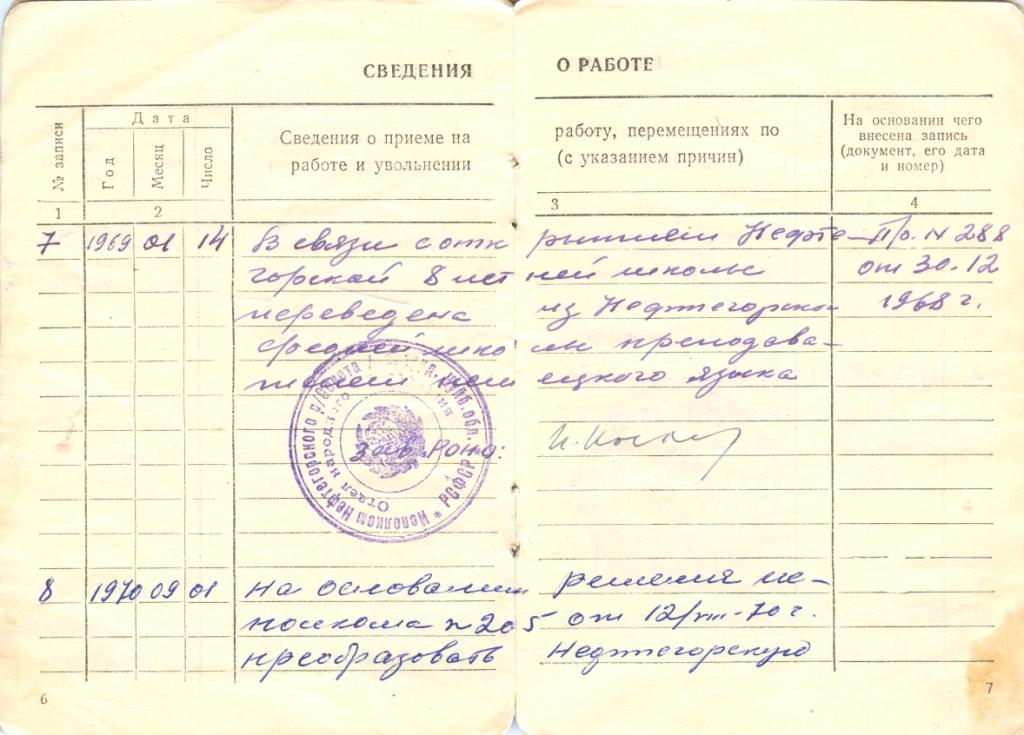 СВЕДЕНИЯ О РАБОТЕ
№ записи
Дата
Год
Месяц
Число
Сведения о приеме на работу, перемещениях по
работе и увольнении (с указанием причин)
На основании чего
внесена запись
(документ, его дата
и номер)
1 2 3 4
7 1969 01 14 В связи с открытием Нефте- Пр. N 288
горской 8 летней школы от 30.12
переведена из Нефтегорской 1968 г.
средней школы преподава-
телем немецкого языка
зав. Роно:
Исполком Нефтегорского р/совета
обл. * РСФСР *
Отдел народного
8 1970 09 01 на основании решения ис-
полкома N 205 от 12/VIII-70 г.
преобразовать Нефтегорскую
6
7